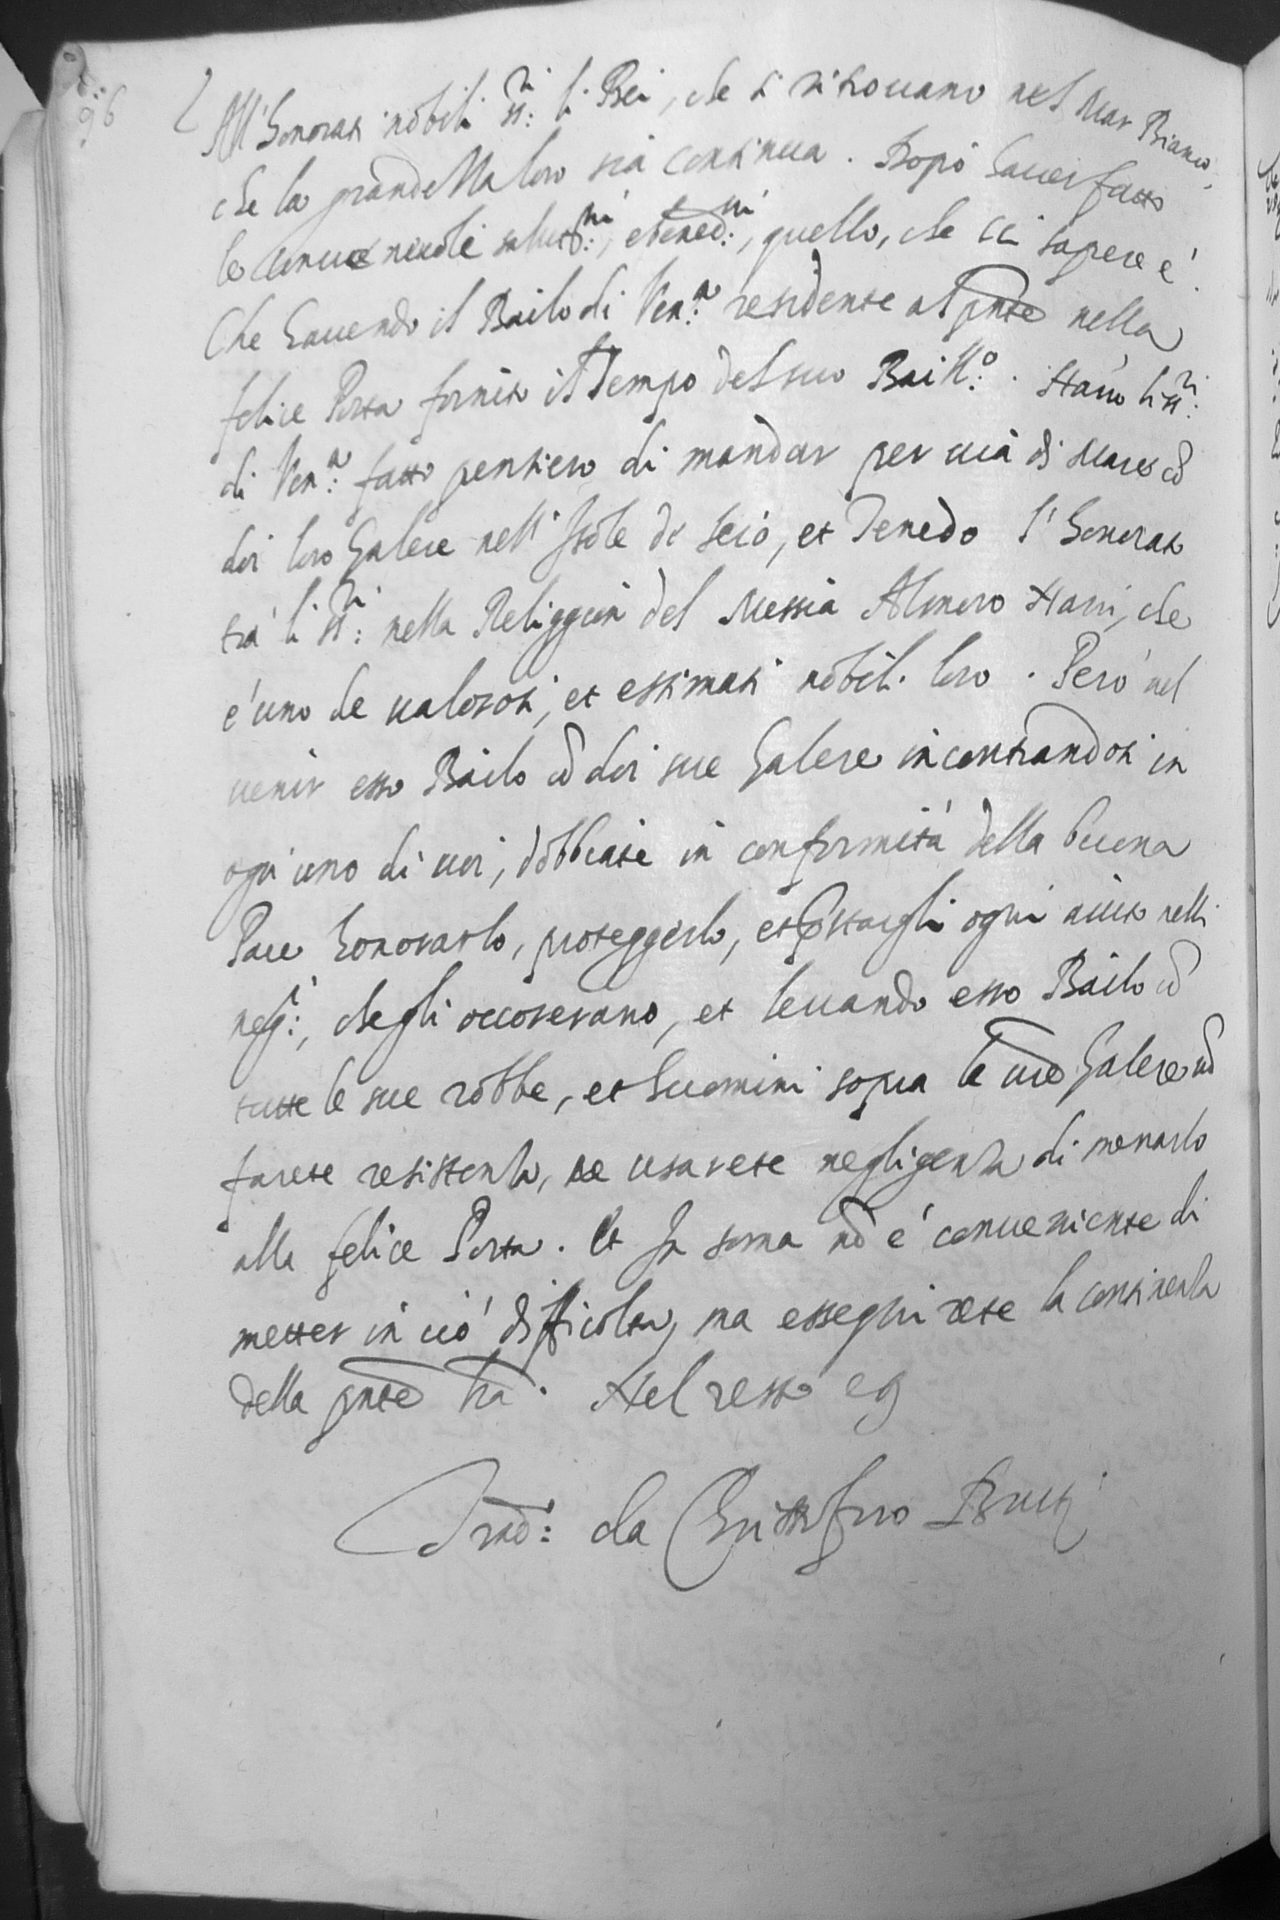 96
All'honorati nobili ss:ri li Bei, che si ritrovano nel Mar Bianco,
che la grandezza loro sia continua. Dopò haver fatto
le convenevole salut:ni, et bened:ni, quello, che vi sapere è
Che havendo il Bailo di Ven:a residente al pnte nella
felice Porta fornito il tempo del suo Bail:o. Hano li ss:ri
di Ven:a fatto pensiero di mandar per via di Mare cõ
doi loro Galere nell'Isole de Scio, et Tenedo l'honorato
trà li ss:ri nella Religgion del Messia Almoro Nani, che
è uno de valorosi, et essimati nobili loro. Però nel
venir esso Bailo cõ doi sue Galere incontrandosi in
ogn'uno di voi, dobbiate in conformità della buona
Pace honorarlo, proteggerlo, et pstargli ogni aiuto nelli
neg:i, che gli occorerano, et levando esso Bailo cõ
tutte le sue robbe, et huomini sopra le vre Galere nõ
farete resistenza, ne usarete negligenza di menarlo
alla felice Porta. Et In soma nõ è conveniente di
metter in ciò difficolta, ma esseghirete la continenza
della pnte lra. Nel resto eg
Trad: da Christofforo Brutti